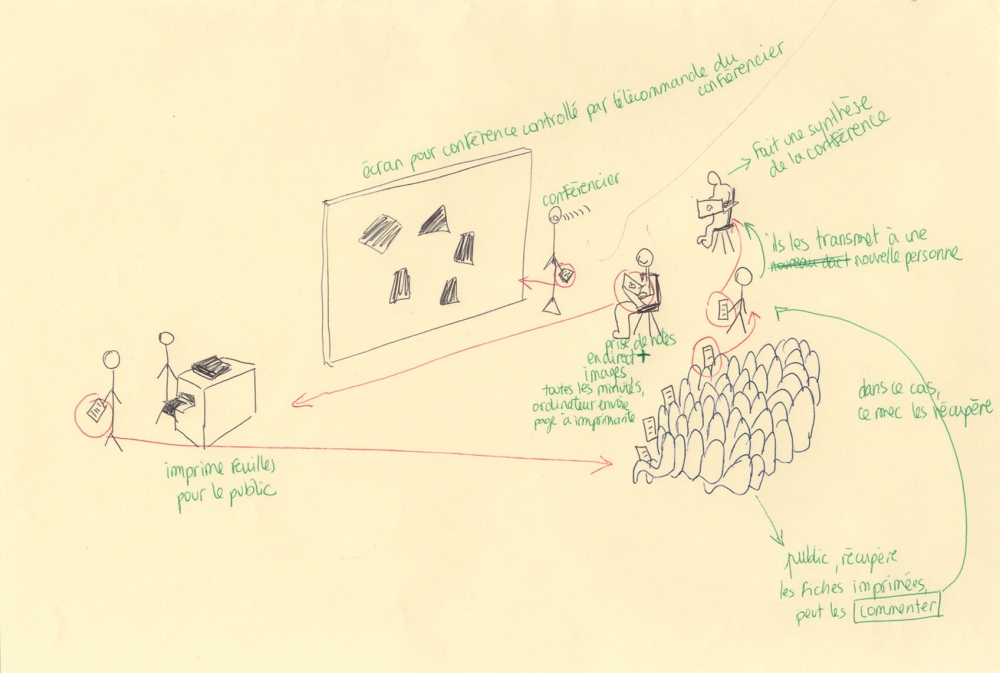 écran pour conférence controllé par télécommande du
conférencier
conférencier
→ Fait une synthèse
de la conférence
ils les transmet à une
nouvelle personne
prise de notes
en direct +
images
toutes les minutes,
ordinateur envoie
page à imprimante
dans ce cas,
ce mec les récupère
imprime feuilles
pour le public
public, récupère
les fiches imprimées,
peut les commenter